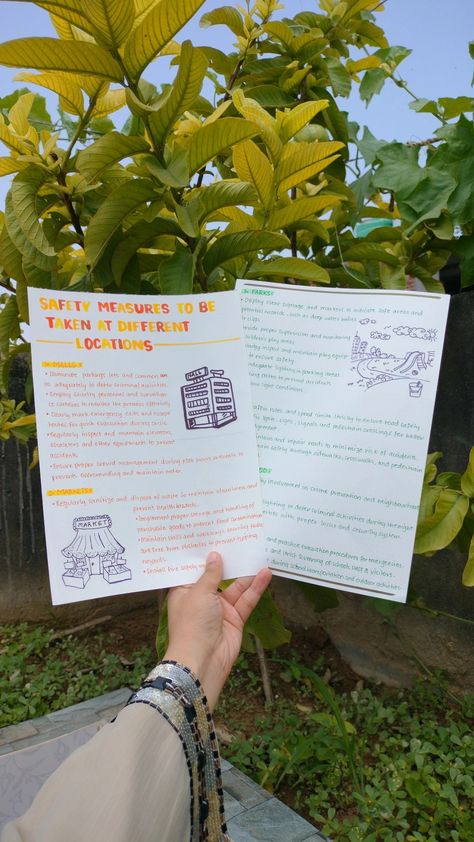 SAFETY MEASURES TO BE
TAKEN AT DIFFERENT
LOCATIONS
IN MALLS:
Illuminate parking lots and common areas
adequately to deter criminal activities.
Employ security personnel and surveillance
cameras to monitor the premises effectively.
Clearly mark emergency exits and escape
routes for quick evacuation during crisis.
Regularly inspect and maintain elevators,
escalators and other equipments to prevent
accidents.
Ensure proper crowd management during peak hours or events to
prevents overcrowding and maintain order.
MALL
IN MARKETS:
Regularly sanitize and dispose of waste to maintain cleanliness and
prevent health hazards.
Implement proper storage and handling of
perishable goods to prevent food contamination
Maintain stalls and walkways ensuring they
are free from obstacles to prevent tripping
hazards.
Install fire safety
MARKET
IN PARKS:
Display clear signage and markers to indicate safe areas and
potential hazards, such as deep water bodies
proper supervision and monitoring
play areas
inspect and maintain play equipment
to ensure safety.
adequate lighting in parking
to prevent accidents
low light conditions.
rules and speed limits strictly to ensure road safety
signs, signals and pedestrian crossings for better
and repair roads to minimize risk of accidents.
safety through sidewalks, crosswalks, and pedestrian
involvement in crime prevention and neighbourhood
lighting to deter criminal activities during the night
with proper locks and security system.
and practice evacuation procedures for emergencies.
and strict screening of schools, staff & visitors.
during transportation and outdoor activities.